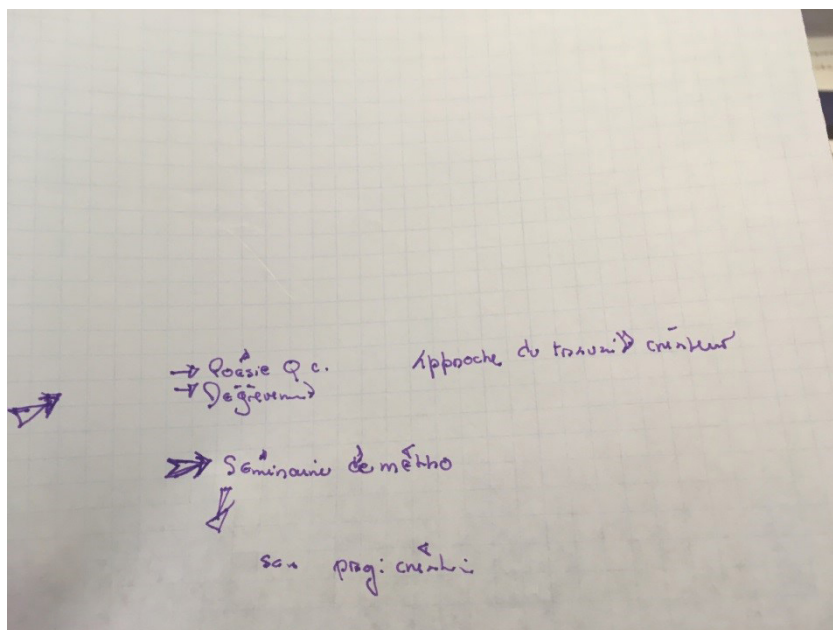 → Poésie Q c.
Approche du travail créateur
→ Dégrèvement
⇒ Séminaire de métho
son proj: créati